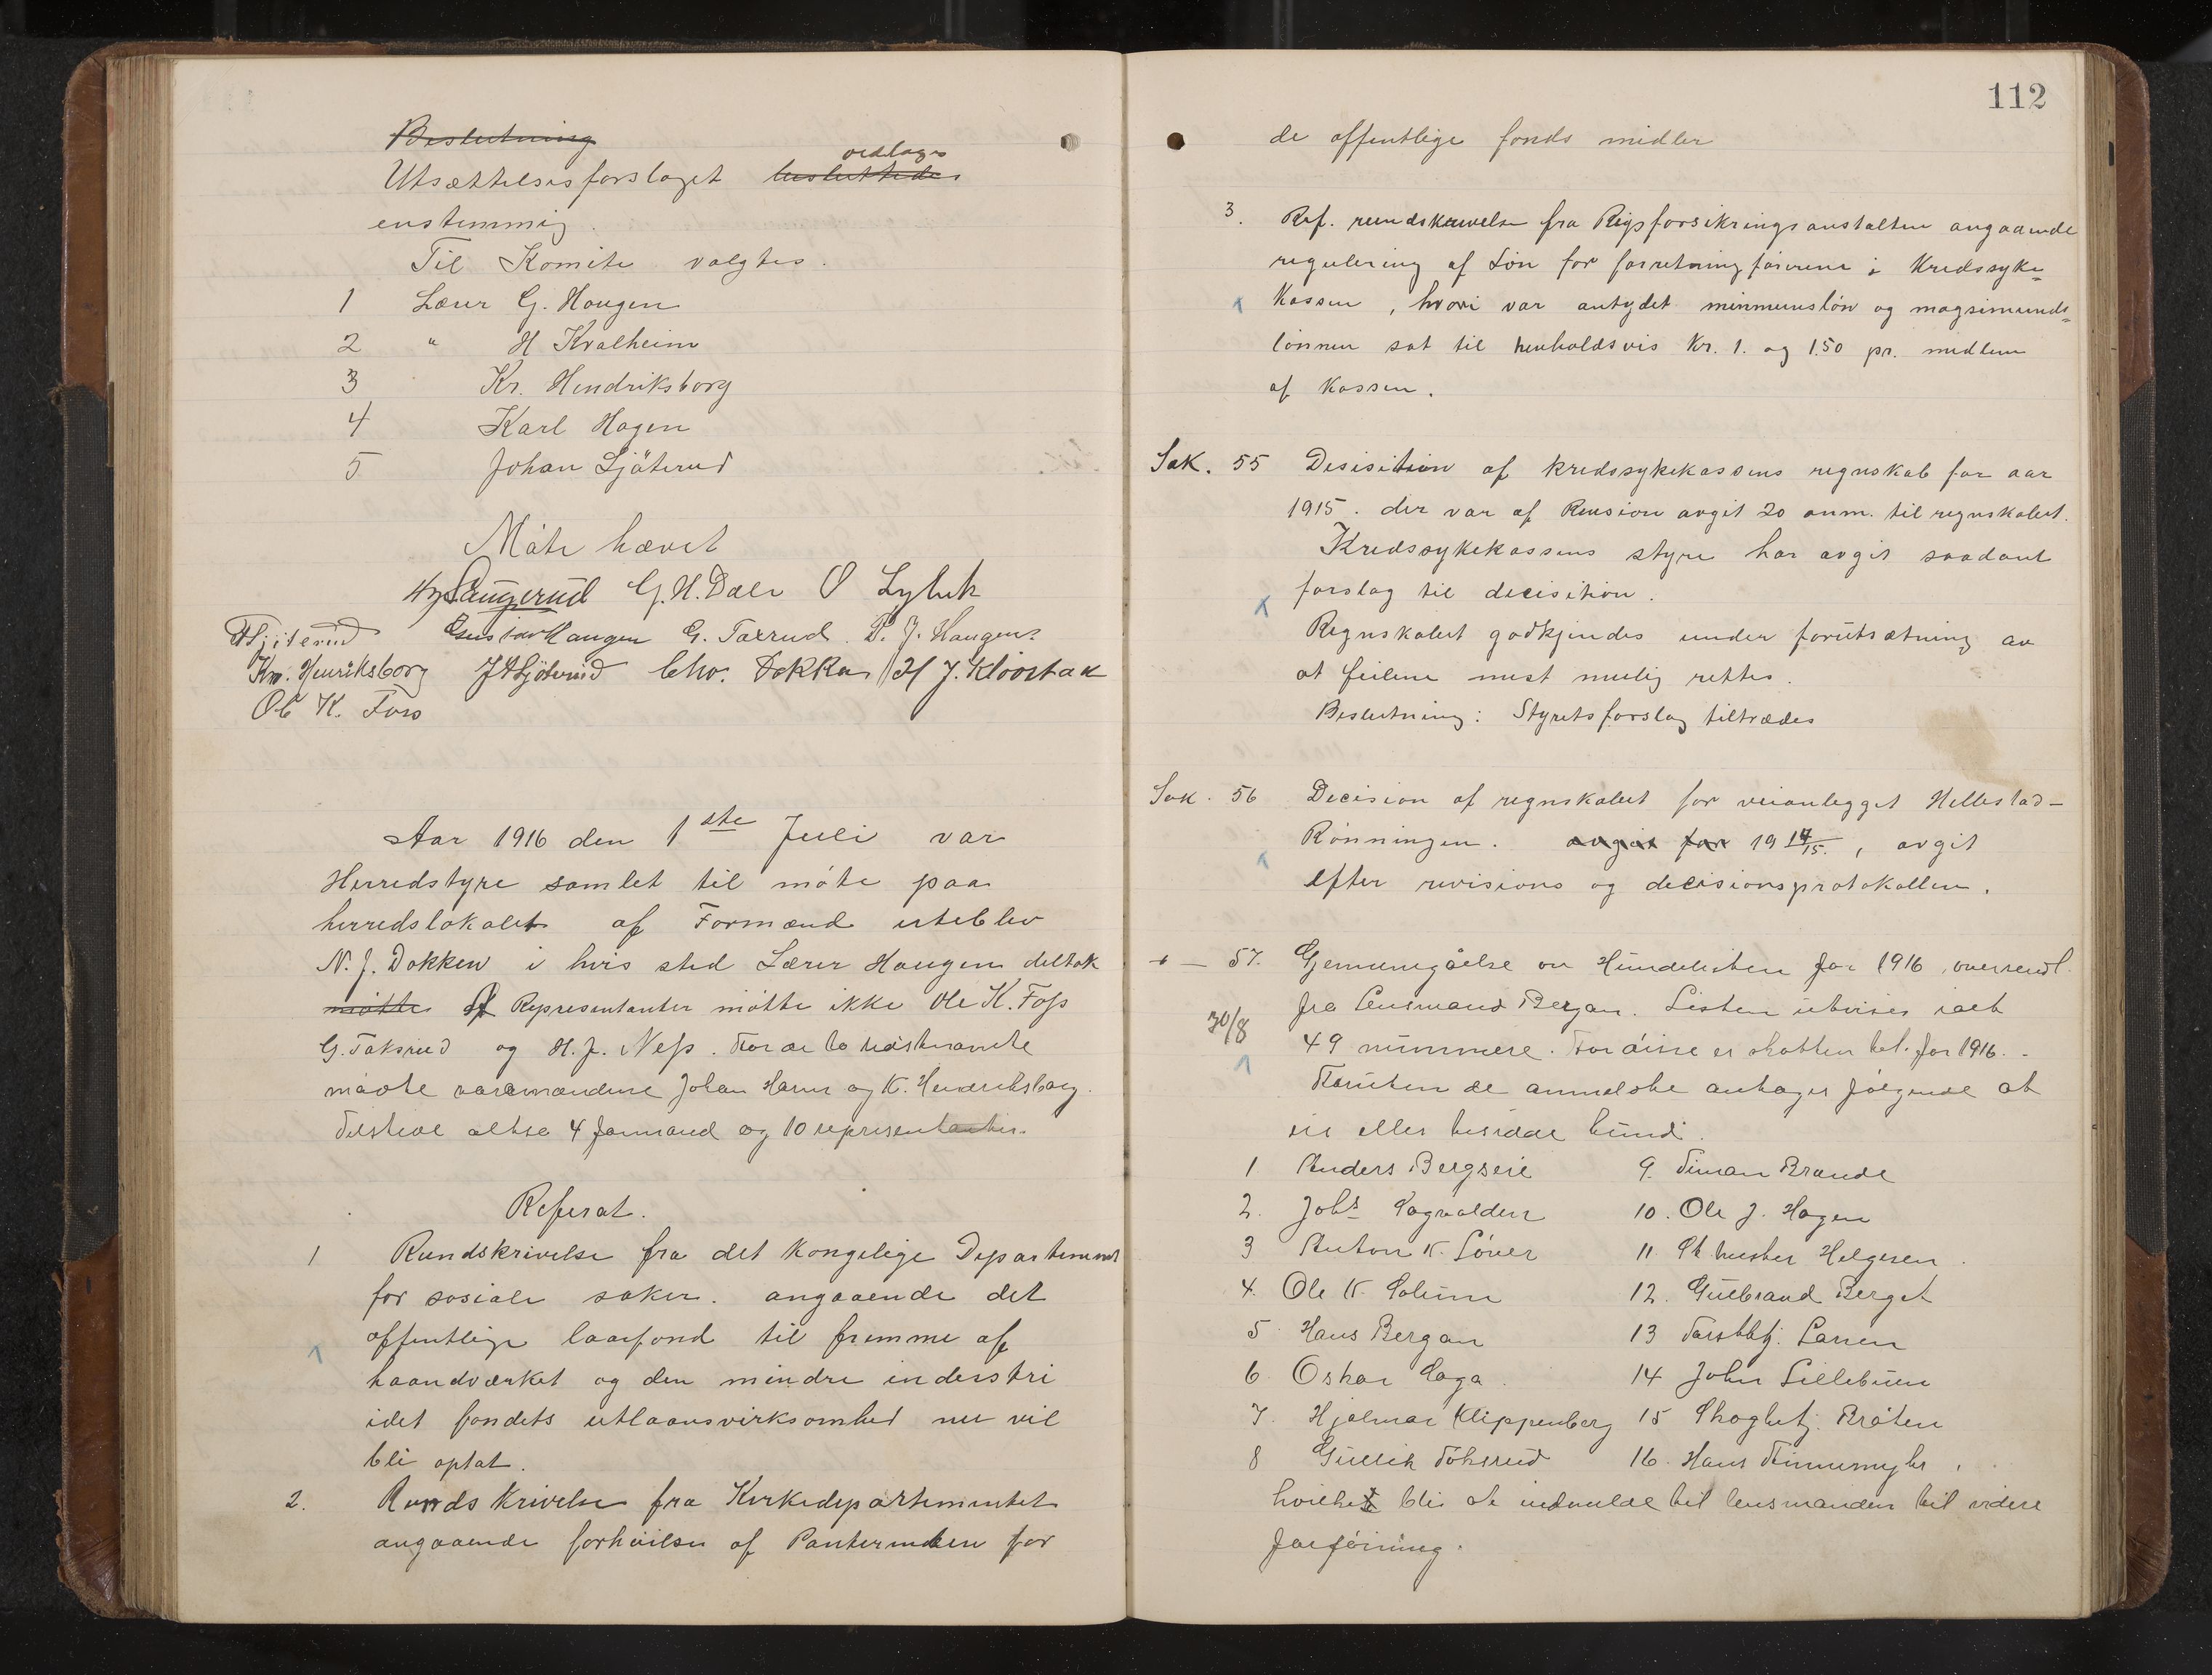 Beslutning
vedtages
Utsættelsesforslaget besluttedes
enstemmig.
Til Komite valgtes.
1 Lærer G. Haugen
2 " H Kvalheim
3 Kr. Hendriksborg
4 Karl Hagen
5 Johan Ljöterud
Möte hævet
G. H. Dæli O
Gustav Haugen G. Taxrud. P. J. Haugen.
Kr. Henriksborg Chr. Dokka H J.
Ole K. Foss
Aar 1916 den 1ste Juli var
Herredstyre samlet til möte paa
herredslokalet af Formænd uteblev
N. J. Dokken i hvis sted Lærer Haugen deltok
mötte Af Representanter mötte ikke Ole K. Foss
G. Taksrud og H. J. Ness. For de to sidstnævnte
mödte varamændene Johan Horne og K. Hendriksborg.
Tilstede altsa 4 formænd og 10 representanter.
Referat.
1 Rundskrivelse fra det kongelige Departement
for sosiale saker. angaaende det
offentlige laanefond til fremme af
haandværket og den mindre inderstri
idet fondets utlaansvirksomhed nu vil
bli optat.
2. Rundskrivelse fra Kirkedepartementet
angaaende forhöielse af Panterenten for
112
de offentlige fonds midler
3. Ref. rundskrivelse fra Rigsforsikringsanstalten angaaende
regulering af Lön for forretningförerne i Kredssyke=
Kassen, hvori var antydet minmumslön og magsimunds=
lönnen sat til henholdsvis Kr. 1. og 1.50 pr. medlem
af Kassen.
Sak. 55 Desisition af kredssykekassens regnskab for aar
1915. der var af Revision avgit 20 anm. til regnskabet.
Kredssykekassens styre har avgit saadant
forslag til decisition.
Regnskabet godkjendes under forutsætning av
at feilene mest mulig rettes.
Beslutning: Styrets forslag tiltrædes
Sak. 56 Decision af regnskabet for veianlegget Hellestad-
Rönningen. avgit for 19 14/15., avgit
efter revisions og decisionsprotokollen.
+ — 57. Gjennemgåelse av Hundelisten for 1916, oversendt
fra lensmand Bergan. Listen utviser ialt
30/8 49 nummere. For disse er skatten bet. for 1916.
Foruten de anmeldte antages følgende at
eie eller besidde hund.
1 Anders Bergseie 9. Timan Braude
2. Johs Sagvolden 10. Ole J. Hagen
3 Anton K. Söner 11. Helgesen.
4. Ole K. Solum 12. Gulbrand Berget
5 Hans Bergan 13 Larsen
6 Oskar Haga. 14 John Lillebuen
7. Hjalmar Klippenberg 15 Bråten
8 Gullik Töksrud 16. Hans Finnemyhr.
hvilket blir at indmelde til lensmanden til videre
forföining.